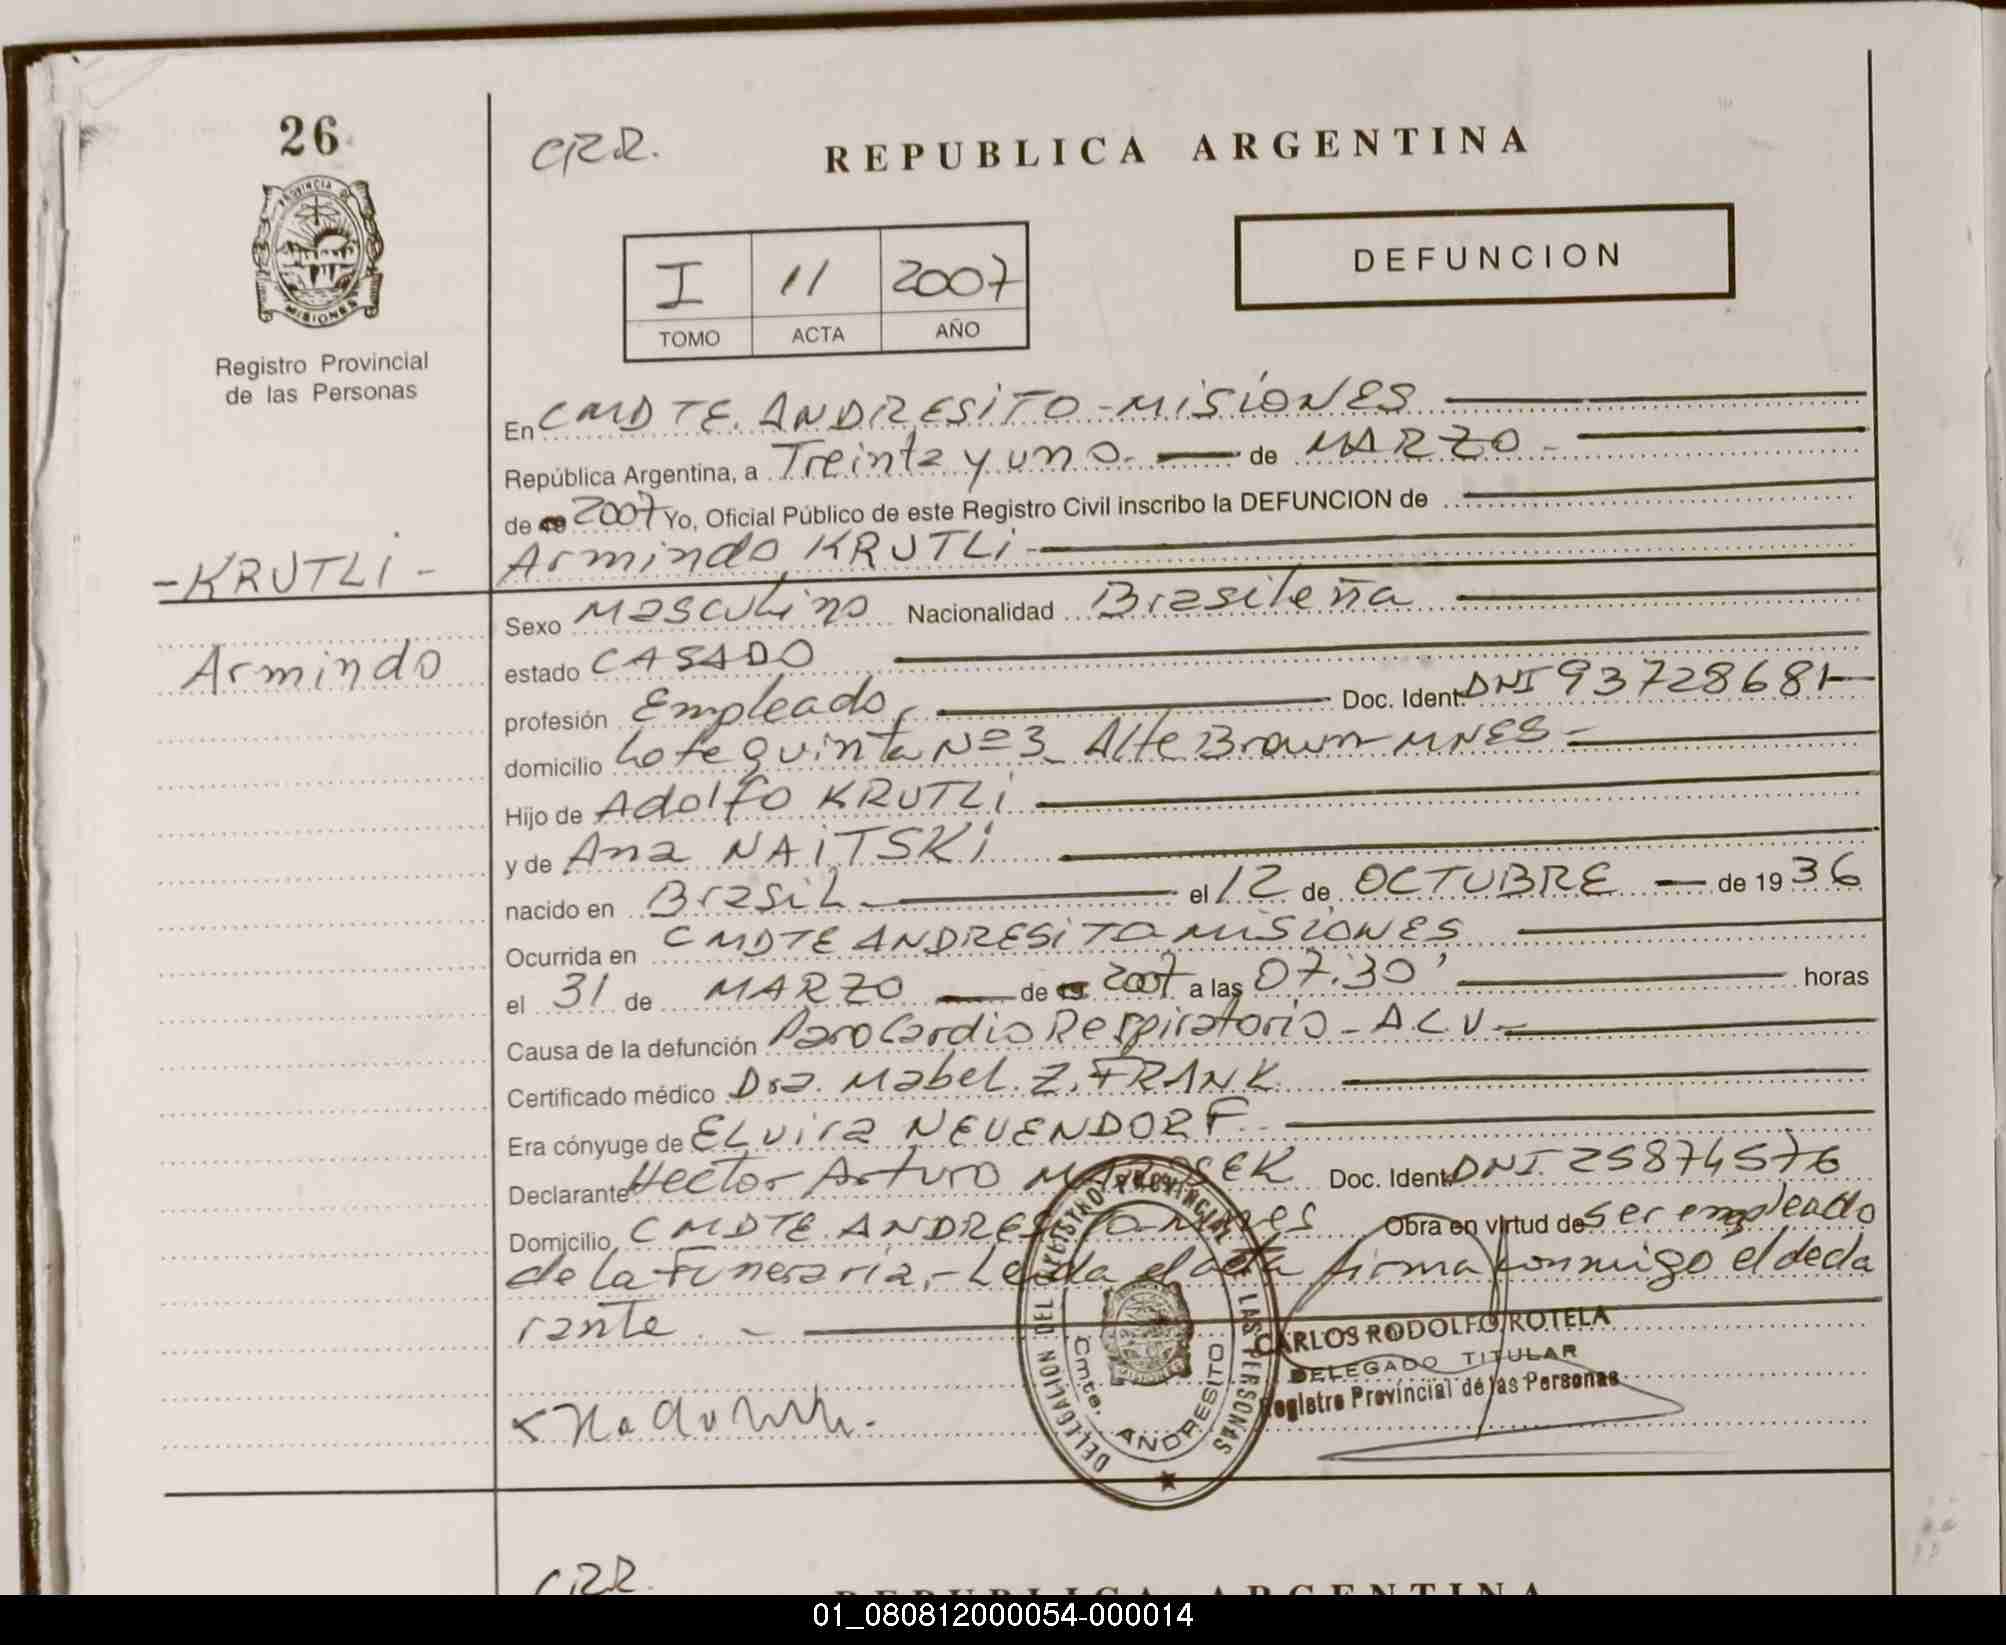 26
CRR.
REPUBLICA ARGENTINA
PROVINCIA D
MISIONES
Registro Provincial
de las Personas
I 11 2007
TOMO ACTA AÑO
DEFUNCION
En CMDTE. ANDRESITO-MISIONES
República Argentina, a Treinta y uno. de MARZO-
de 19 2007 Yo, Oficial Público de este Registro Civil inscribo la DEFUNCION de
Armindo KRUTLI-
-KRUTLI-
Armindo
Sexo Masculino Nacionalidad Brasileña
estado CASADO
profesión Empleado, Doc. Ident. DNI 93728681-
domicilio Lote quinta Nº3 Alte Brown-MNES-
Hijo de Adolfo KRUTLI
y de Ana NAITSKI
nacido en Brasil el 12 de OCTUBRE de 1936
Ocurrida en CMDTE ANDRESITO MISIONES
el 31 de MARZO de 19 2007 a las 07:30' horas
Causa de la defunción Paro Cardio Respiratorio-ACV-
Certificado médico Dra. Mabel Z. FRANK
Era cónyuge de ELvira NEUENDORF.
Declarante Hector Arturo Doc. Ident. DNI 25874576
Domicilio CMDTE ANDRESITO-Mnes Obra en virtud de ser empleado
de la Funeraria,-Leída el acta firma conmigo el decla
rante.-
DELEGACION DEL REGISTRO PROVINCIAL DE LAS PERSONAS
Cmte. ANDRESITO
CARLOS RODOLFO ROTELA
DELEGADO TITULAR
Registro Provincial de las Personas
CRR.
REPUBLICA ARGENTINA
01_080812000054-000014